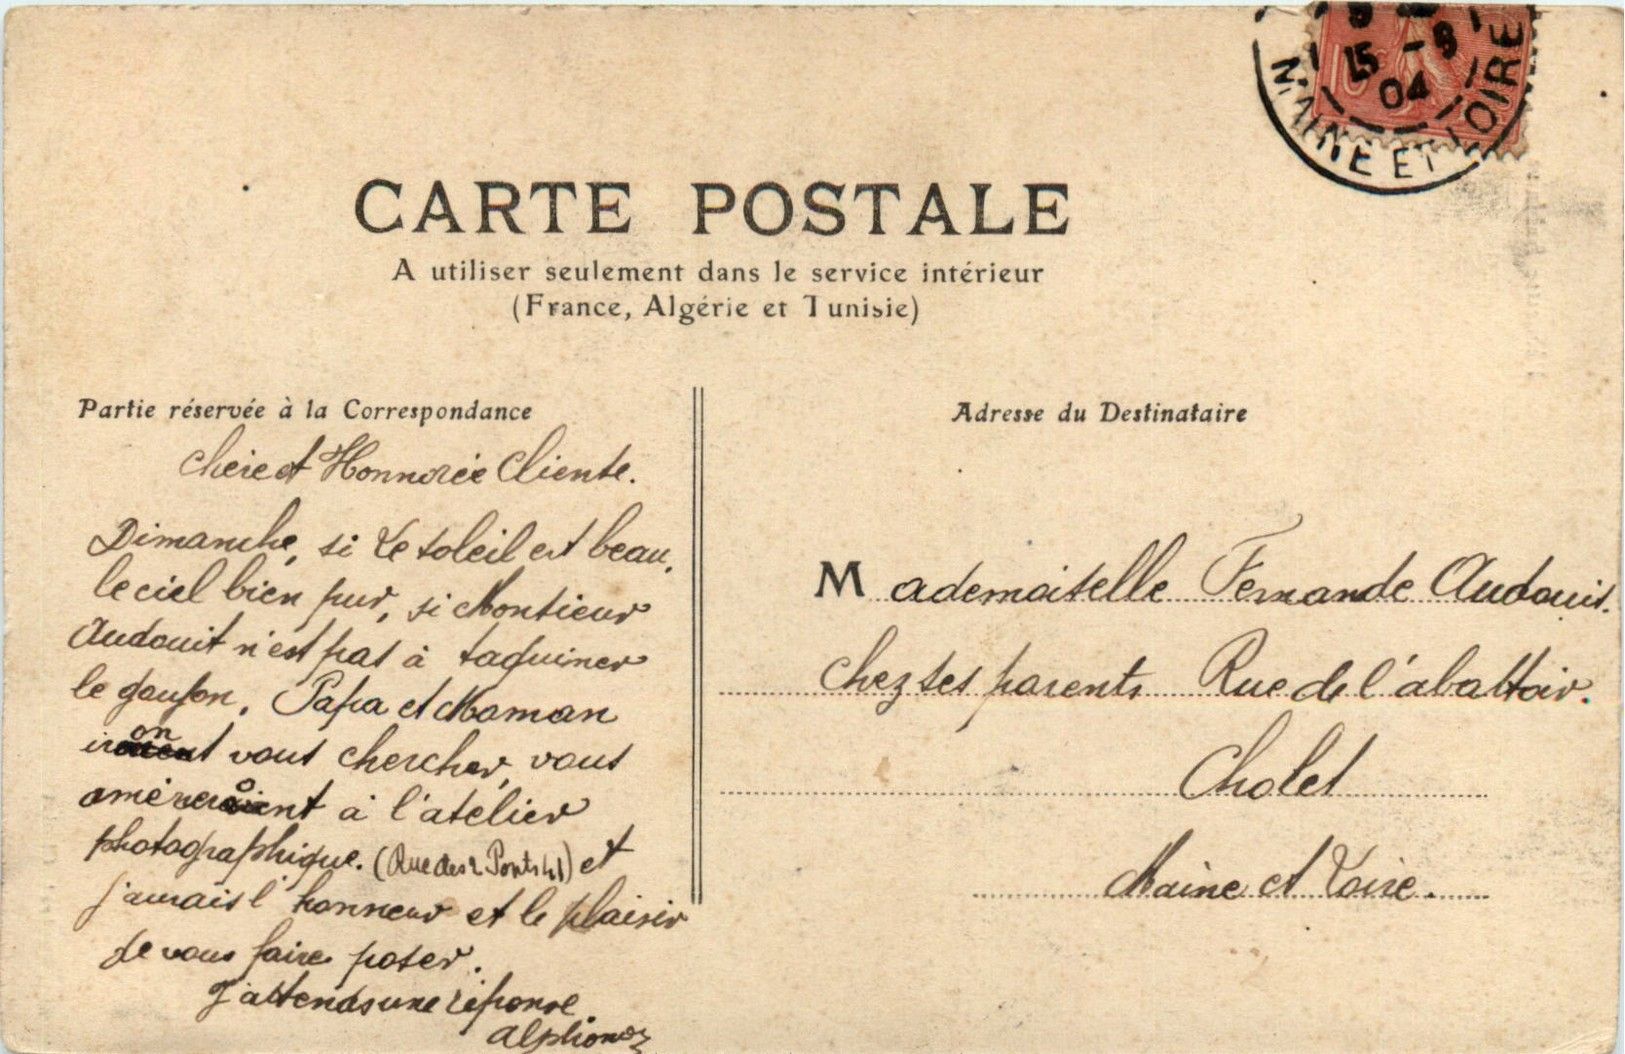 15 -8
04
MAINE ET LOIRE
CARTE POSTALE
A utiliser seulement dans le service intérieur
(France, Algérie et Tunisie)
Partie réservée à la Correspondance
Chère et Honnorée Cliente.
Dimanche, si le soleil est beau,
le ciel bien pur, si Monsieur
Audouit n'est pas à taquiner
le goujon, Papa et Maman
iront vous chercher, vous
amèneront à l'atelier
photographique. (Rue des 2 Ponts 41) et
j'aurais l'honneur et le plaisir
de vous faire poser.
J'attends une réponse
Adresse du Destinataire
Mademoiselle Fernande Audouit.
Chez ses parents Rue de l'abattoir.
Cholet
Maine et Loire.